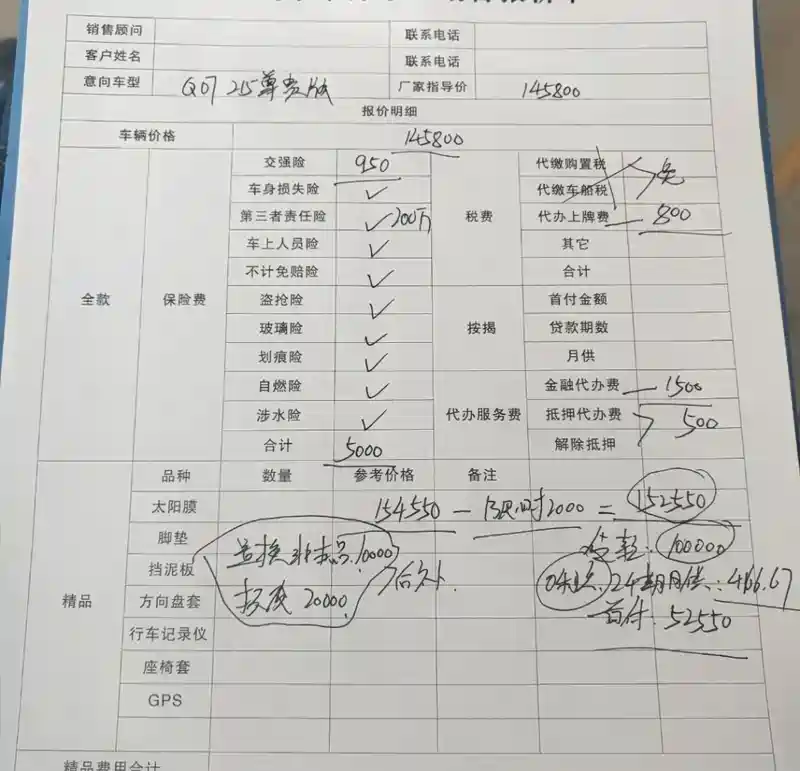 销售顾问 联系电话
客户姓名 联系电话
意向车型 Q07 215尊贵版 厂家指导价 145800
报价明细
车辆价格 145800
全款
保险费
交强险 950
车身损失险 ✓
第三者责任险 ✓ 200万
车上人员险 ✓
不计免赔险 ✓
盗抢险 ✓
玻璃险 ✓
划痕险 ✓
自燃险 ✓
涉水险 ✓
合计 5000
税费
代缴购置税 免
代缴车船税
代办上牌费 800
其它
合计
按揭
首付金额
贷款期数
月供
代办服务费
金融代办费 1500
抵押代办费 500
解除抵押
精品
品种 数量 参考价格 备注
太阳膜 154550 - 限时2000 = 152550
脚垫 置换非本品 10000 贷款: 100000
挡泥板 后补 0利息 24期月供: 4166.67
方向盘套 报废 20000 首付: 52550
行车记录仪
座椅套
GPS
精品费用合计